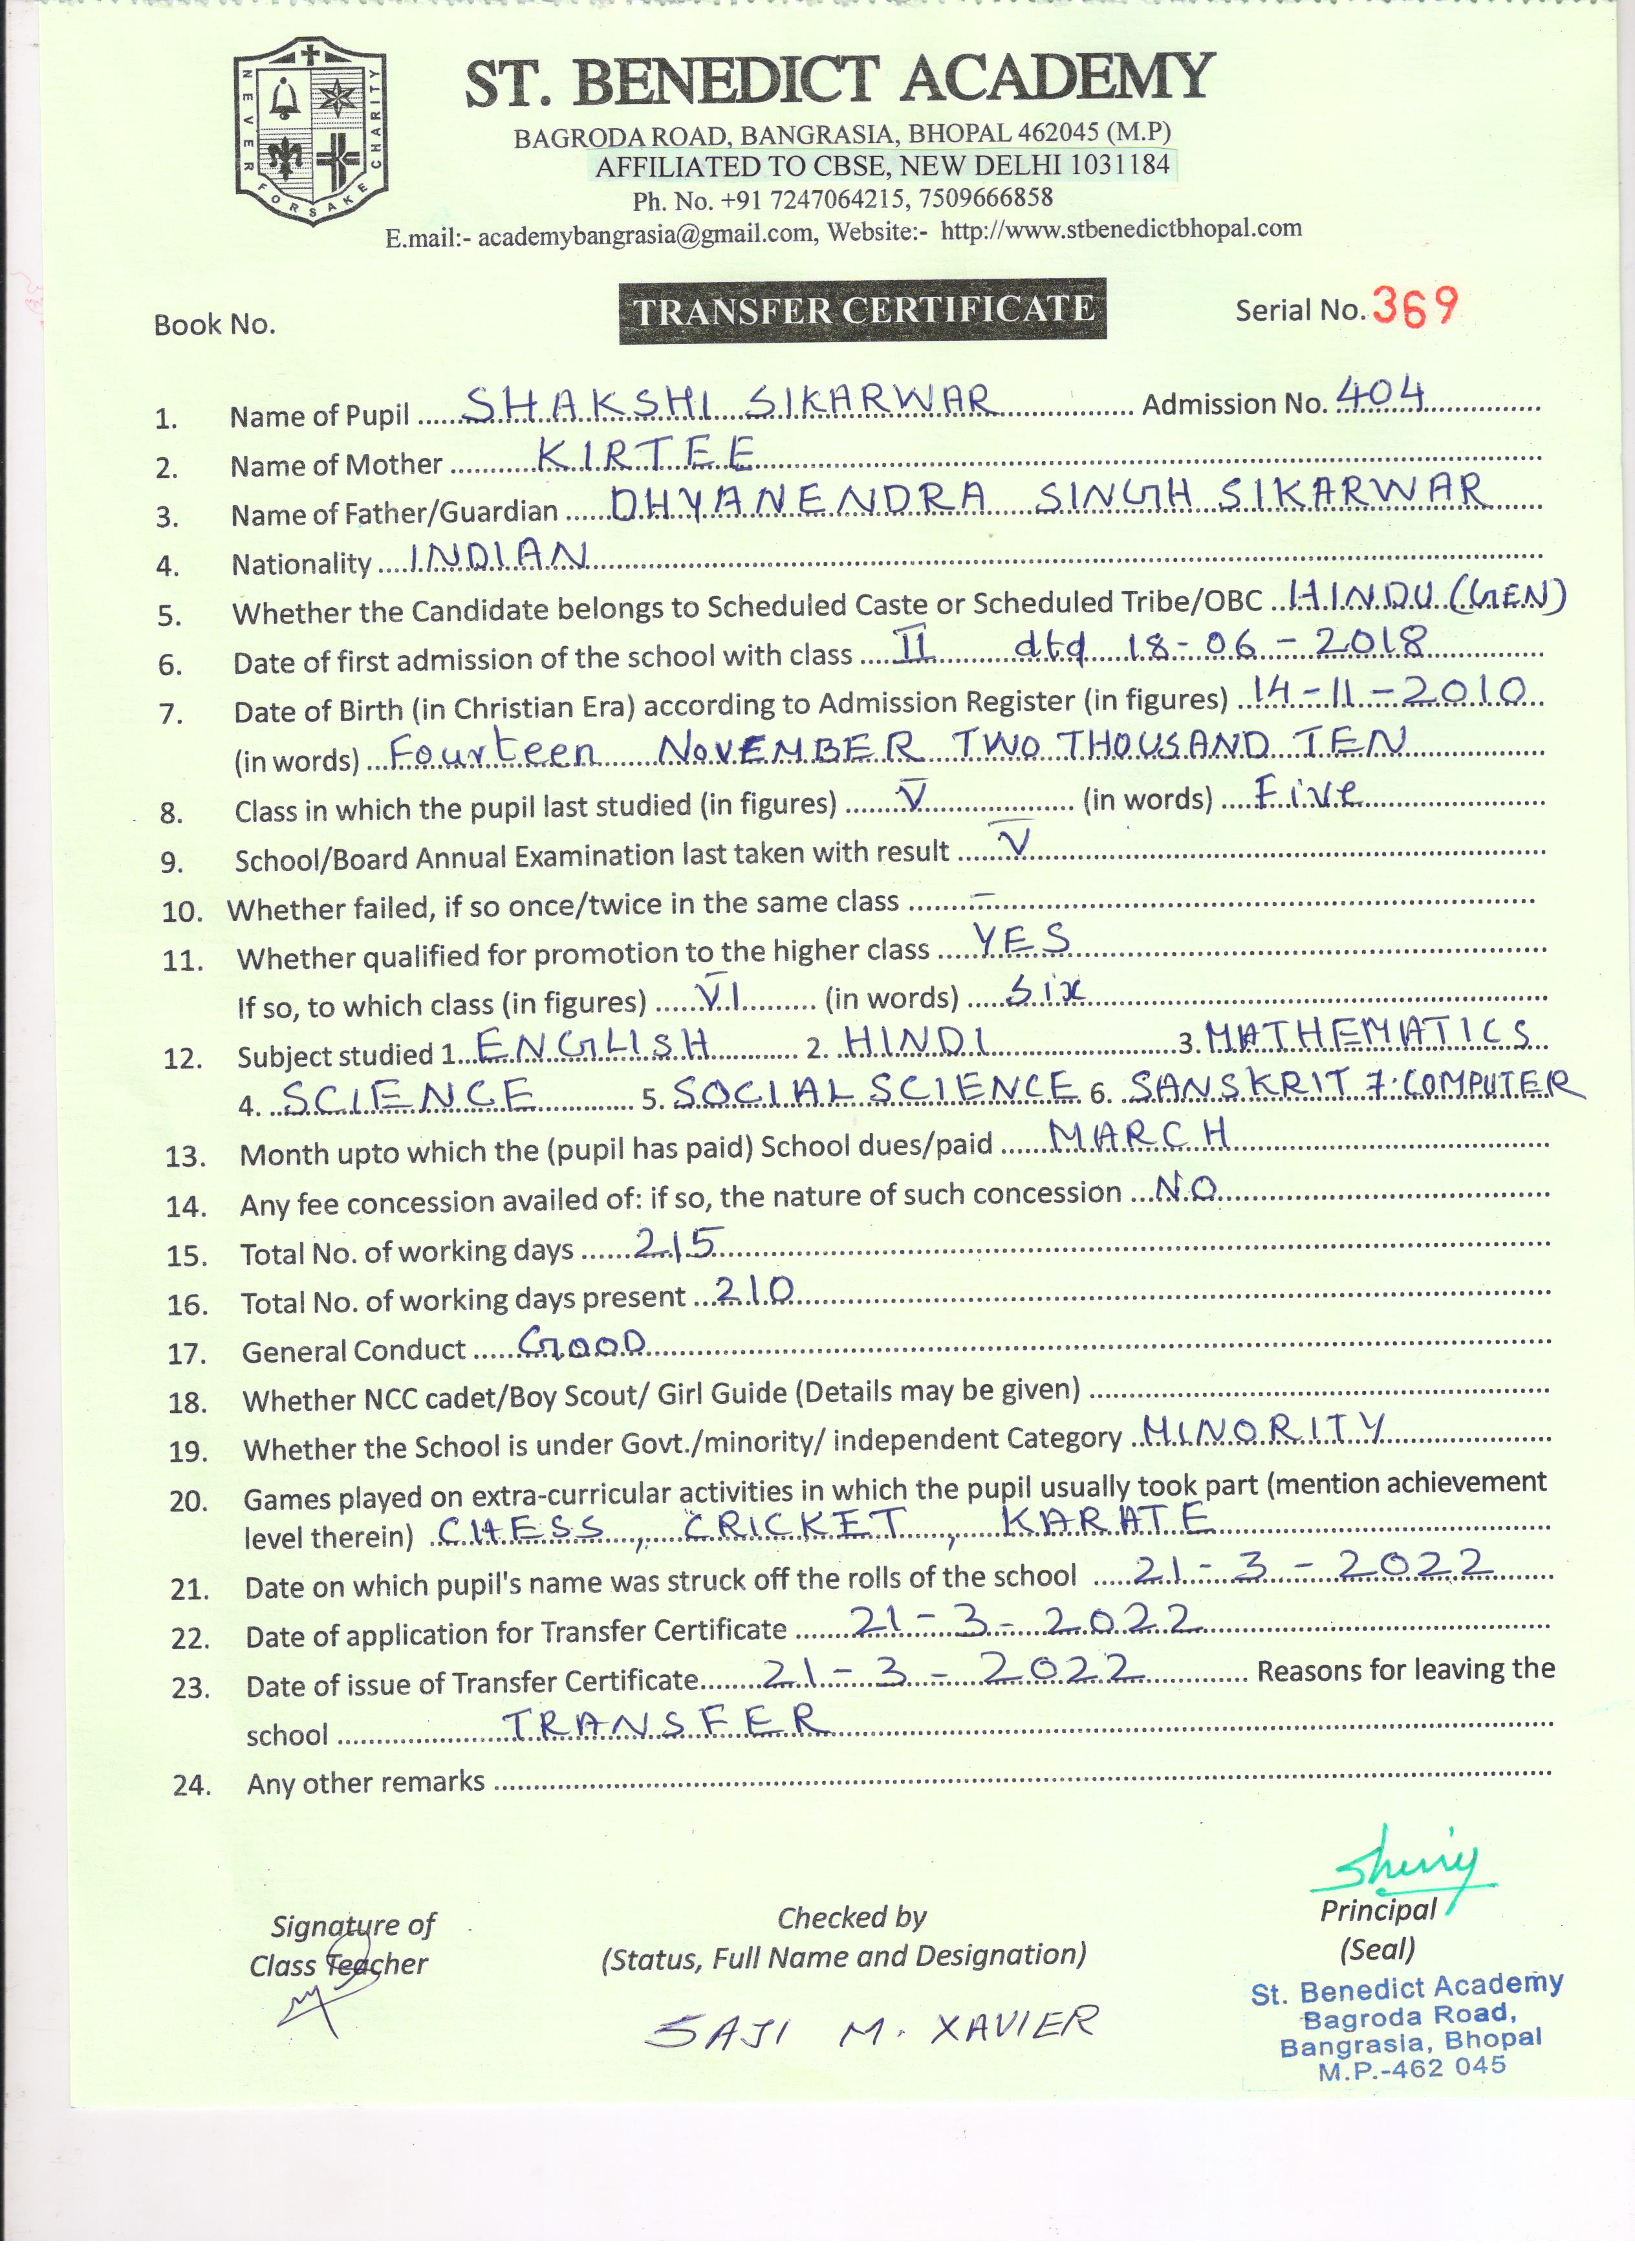 NEVER FORSAKE CHARITY
ST. BENEDICT ACADEMY
BAGRODA ROAD, BANGRASIA, BHOPAL 462045 (M.P)
AFFILIATED TO CBSE, NEW DELHI 1031184
Ph. No. +91 7247064215, 7509666858
E.mail:- academybangrasia@gmail.com, Website:- http://www.stbenedictbhopal.com
Book No. TRANSFER CERTIFICATE Serial No. 369
1. Name of Pupil SHAKSHI SIKARWAR Admission No. 404
2. Name of Mother KIRTEE
3. Name of Father/Guardian DHYANENDRA SINGH SIKARWAR
4. Nationality INDIAN
5. Whether the Candidate belongs to Scheduled Caste or Scheduled Tribe/OBC HINDU (GEN)
6. Date of first admission of the school with class II dtd 18-06-2018
7. Date of Birth (in Christian Era) according to Admission Register (in figures) 14-11-2010
(in words) Fourteen NOVEMBER TWO THOUSAND TEN
8. Class in which the pupil last studied (in figures) V (in words) Five
9. School/Board Annual Examination last taken with result V
10. Whether failed, if so once/twice in the same class –
11. Whether qualified for promotion to the higher class YES
If so, to which class (in figures) VI (in words) Six
12. Subject studied 1. ENGLISH 2. HINDI 3. MATHEMATICS
4. SCIENCE 5. SOCIAL SCIENCE 6. SANSKRIT 7. COMPUTER
13. Month upto which the (pupil has paid) School dues/paid MARCH
14. Any fee concession availed of: if so, the nature of such concession NO
15. Total No. of working days 215
16. Total No. of working days present 210
17. General Conduct GOOD
18. Whether NCC cadet/Boy Scout/ Girl Guide (Details may be given)
19. Whether the School is under Govt./minority/ independent Category MINORITY
20. Games played on extra-curricular activities in which the pupil usually took part (mention achievement
level therein) CHESS, CRICKET, KARATE
21. Date on which pupil's name was struck off the rolls of the school 21-3-2022
22. Date of application for Transfer Certificate 21-3-2022
23. Date of issue of Transfer Certificate 21-3-2022 Reasons for leaving the
school TRANSFER
24. Any other remarks
Signature of
Class Teacher
Checked by
(Status, Full Name and Designation)
SAJI M. XAVIER
Principal
(Seal)
St. Benedict Academy
Bagroda Road,
Bangrasia, Bhopal
M.P.-462 045